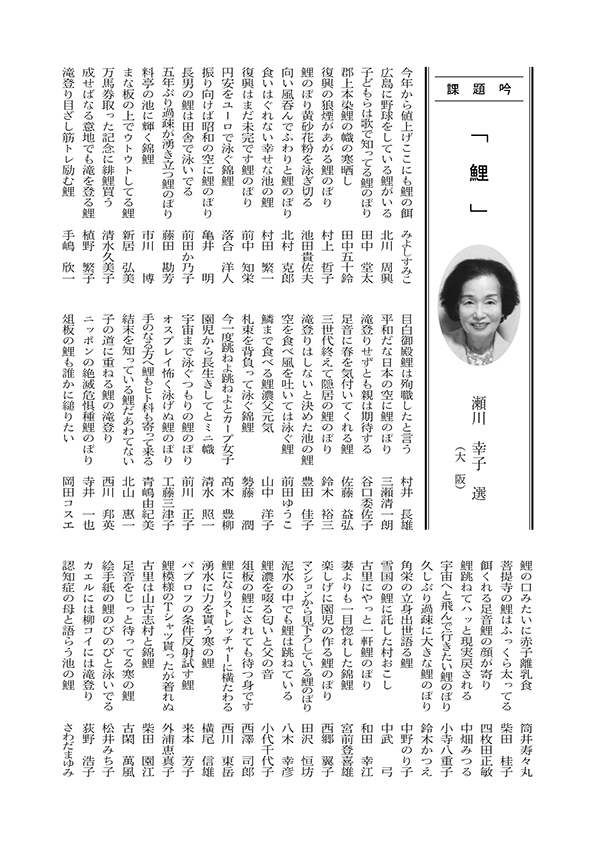 課題吟
「鯉」
瀬川　幸子　選
（大　阪）
今年から値上げここにも鯉の餌　みよしすみこ
広島に野球をしている鯉がいる　北川　周興
子どもらは歌で知ってる鯉のぼり　田中　堂太
郡上本染鯉の幟の寒晒し　田中五十鈴
復興の狼煙があがる鯉のぼり　村上　哲子
鯉のぼり黄砂花粉を泳ぎ切る　池田貴佐夫
向い風呑んでふわりと鯉のぼり　北村　克郎
食いはぐれない幸せな池の鯉　村田　繁一
復興はまだ未完です鯉のぼり　前中　知栄
円安をユーロで泳ぐ錦鯉　落合　洋人
振り向けば昭和の空に鯉のぼり　亀井　　明
長男の鯉は田舎で泳いでる　前田か乃子
五年ぶり過疎が湧き立つ鯉のぼり　藤田　勘芳
料亭の池に輝く錦鯉　市川　　博
まな板の上でウトウトしてる鯉　新居　弘美
万馬券取った記念に緋鯉買う　清水久美子
成せばなる意地でも滝を登る鯉　植野　繁子
滝登り目ざし筋トレ励む鯉　手嶋　欣一
目白御殿鯉は殉職したと言う　村井　長雄
平和だな日本の空に鯉のぼり　三瀬清一朗
滝登りせずとも親は期待する　谷口委佐子
足音に春を気付いてくれる鯉　佐藤　益弘
三世代終えて隠居の鯉のぼり　鈴木　裕三
滝登りはしないと決めた池の鯉　豊田　佳子
空を食べ風を吐いては泳ぐ鯉　前田ゆうこ
鱗まで食べる鯉濃父元気　山中　洋子
札束を背負って泳ぐ錦鯉　勢藤　　潤
今一度跳ねよ跳ねよとカープ女子　髙木　豊柳
園児から長生きしてとミニ幟　清水　照一
宇宙まで泳ぐつもりの鯉のぼり　前川　正子
オスプレイ怖く泳げぬ鯉のぼり　工藤三津子
手のなる方へ鯉もヒト科も寄って来る　青嶋由紀美
結末を知っている鯉だあわてない　北山　惠一
子の道に重ねる鯉の滝登り　西川　邦英
ニッポンの絶滅危惧種鯉のぼり　寺井　一也
俎板の鯉も誰かに縋りたい　岡田コスエ
鯉の口みたいに赤子離乳食　筒井寿々丸
菩提寺の鯉はふっくら太ってる　柴田　桂子
餌くれる足音鯉の顔が寄り　四枚田正敏
鯉跳ねてハッと現実戻される　中畑みつる
宇宙へと飛んで行きたい鯉のぼり　小寺八重子
久しぶり過疎に大きな鯉のぼり　鈴木かつえ
角栄の立身出世語る鯉　中野のり子
雪国の鯉に託した村おこし　中武　　弓
古里にやっと一軒鯉のぼり　和田　幸江
妻よりも一目惚れした錦鯉　宮前登喜雄
楽しげに園児の作る鯉のぼり　西郷　翼子
マンションから見下ろしている鯉のぼり　田沢　恒坊
泥水の中でも鯉は跳ねている　八木　幸彦
鯉濃を啜る匂いと父の音　小代千代子
俎板の鯉にされても待つ身です　西澤　司郎
鯉になりストレッチャーに横たわる　西川　東岳
湧水に力を貰う寒の鯉　横尾　信雄
パブロフの条件反射試す鯉　来本　芳子
鯉模様のＴシャツ貰ったが着れぬ　外浦恵真子
古里は山古志村と錦鯉　柴田　園江
足音をじっと待ってる寒の鯉　古閑　萬風
絵手紙の鯉のびのびと泳いでる　松井みち子
カエルには柳コイには滝登り　荻野　浩子
認知症の母と語らう池の鯉　さわだまゆみ